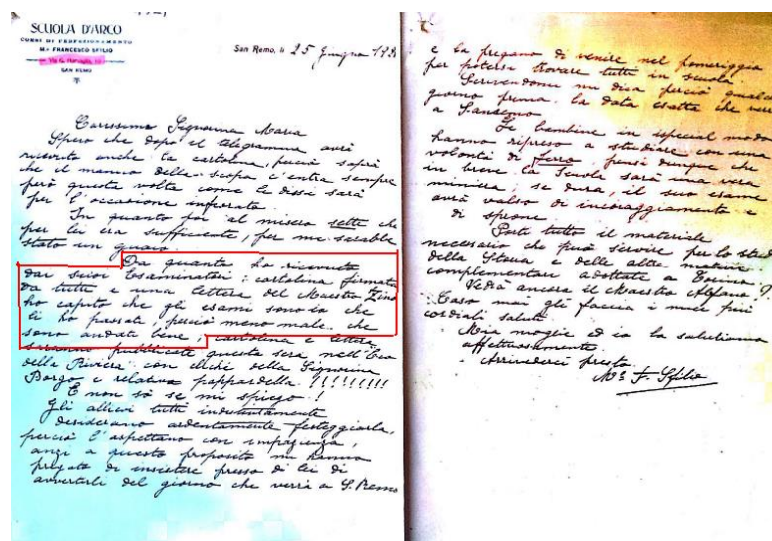 SCUOLA D'ARCO
CORSI DI PERFEZIONAMENTO
M.o FRANCESCO SFILIO
SAN REMO
San Remo, li 25 Giugno 193
Carissima Signorina Maria
Spero che dopo il telegramma avrà
ricevuto anche la cartolina, perciò saprà
che il manico della scopa c'entra sempre
però questa volta come le dissi sarà
per l'occasione infiorato.
In quanto poi al misero sette che
per lei era sufficiente, per me sarebbe
stato un guaio.
Da quanto ho ricevuto
dai suoi Esaminatori: cartolina firmata
da tutti e una lettera del Maestro Zino
ho capito che gli esami sono io che
li ho passati, perciò meno male che
sono andati bene, cartolina e lettera
saranno pubblicate questa sera nell'Eco
della Riviera con clichè della Signorina
Borgo e relativa pappardella !!!!!!!!!
E non sò se mi spiego!
Gli allievi tutti indistintamente
desiderano ardentemente festeggiarla,
perciò l'aspettano con impazienza,
anzi a questo proposito mi hanno
pregato di insistere presso di lei di
avvertirli del giorno che verrà a S. Remo
e la pregano di venire nel pomeriggio
per potersi trovare tutti in scuola.
Scrivendomi mi dica perciò qualche
giorno prima la data esatta che verrà
a Sanremo.
Le bambine in special modo
hanno ripreso a studiare con una
volontà di ferro, pensi dunque che
in breve la Scuola sarà una vera
miniera, se dura, il suo esame
avrà valso di incoraggiamento e
di sprone.
Porti tutto il materiale
necessario che può servire per lo studio
della Storia e delle altre materie
complementari adottate a Torino.
Vedrà ancora il Maestro Alfano?
Caso mai gli faccia i miei più
cordiali saluti.
Mia moglie ed io la salutiamo
affettuosamente.
Arrivederci presto
M.o F. Sfilio